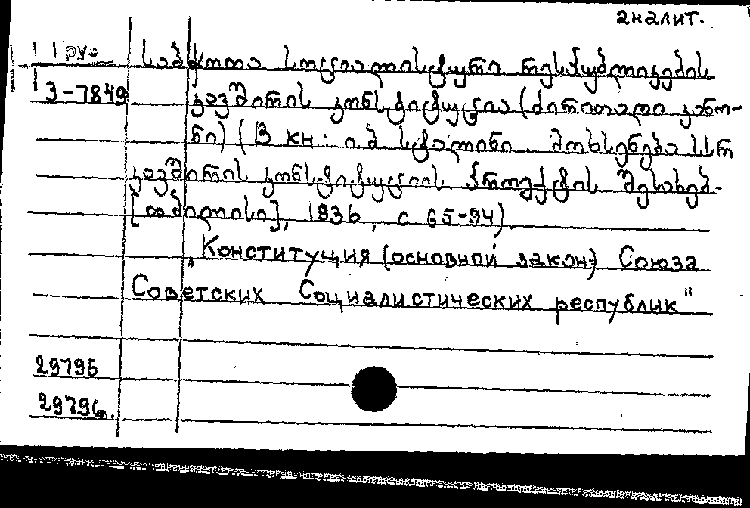 аналит.
Груз
საბჭოთა სოციალისტური რესპუბლიკების
3-7849 კავშირის კონსტიტუცია (ძირითადი კანო-
ნი) (В кн: ი.ბ სტალინი მოხსენება სსრ
კავშირის კონსტიტუციის პროექტის შესახებ-
[თბილისი], 1936, с 65-94)
„Конституция (основной закон) Союза
Советских Социалистических республик"
29795